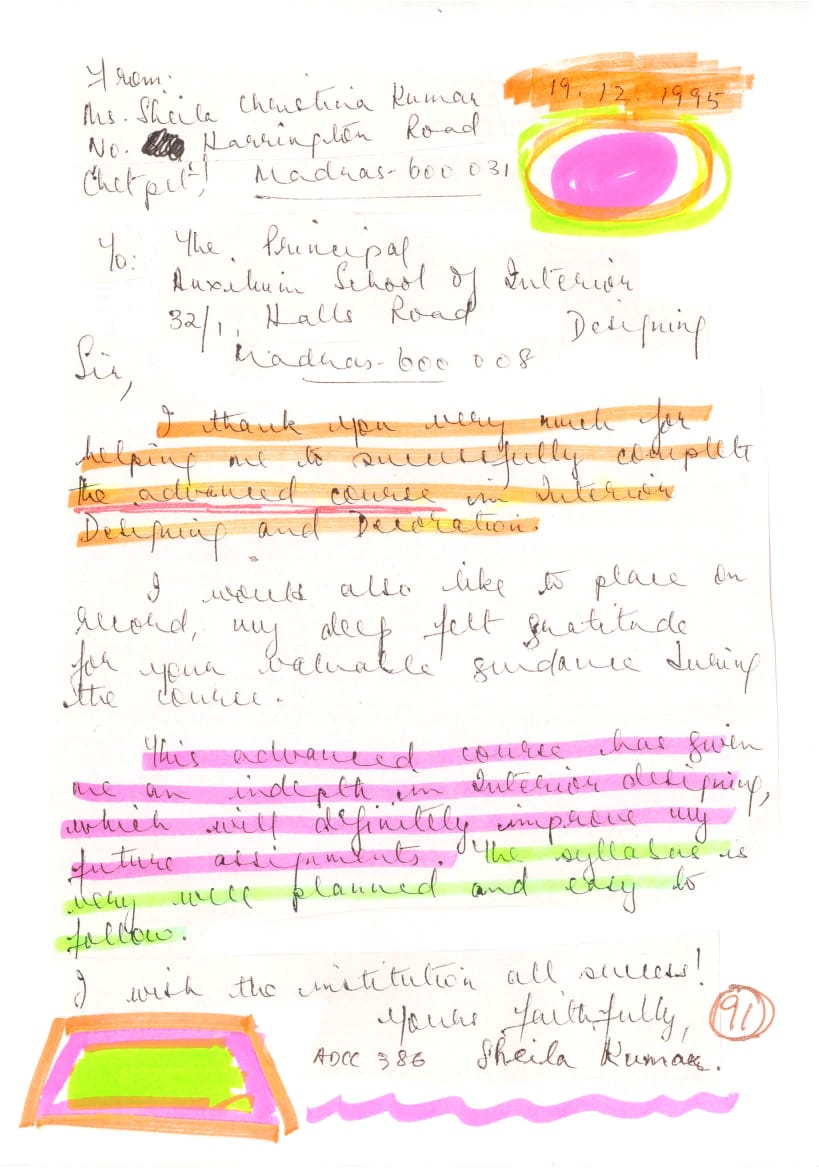 From:
19.12.1995
Ms. Sheila Christina Kumar
No. Harrington Road
Chetpet, Madras-600 031
To: The Principal
Auxilium School of Interior
32/1, Halls Road Designing
Madras-600 008
Sir,
I thank you very much for
helping me to successfully complete
the advanced course in Interior
Designing and Decoration.
I would also like to place on
record, my deep felt gratitude
for your valuable guidance during
the course.
This advanced course has given
me an indepth in Interior designing,
which will definitely improve my
future assignments. The syllabus is
very well planned and easy to
follow.
I wish the institution all success!
Yours faithfully,
91
ADCC 386 Sheila Kumar.